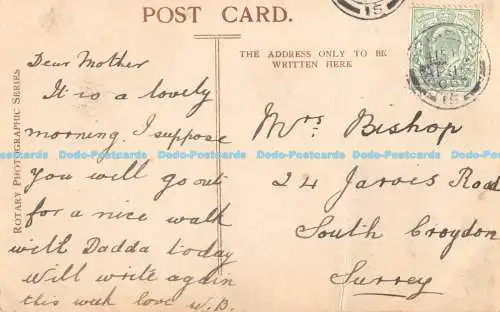 POST CARD.
THE ADDRESS ONLY TO BE
WRITTEN HERE
ROTARY PHOTOGRAPHIC SERIES
Dear Mother
It is a lovely
morning. I suppose
you will go out
for a nice walk
with Dadda today
Will write again
this week love W.B.
Mrs Bishop
24 Jarvis Road
South Croydon
Surrey
15
15
Dodo-Postcards Dodo-Postcards Dodo-Postcards Dodo-Postcards Dodo-Postcards